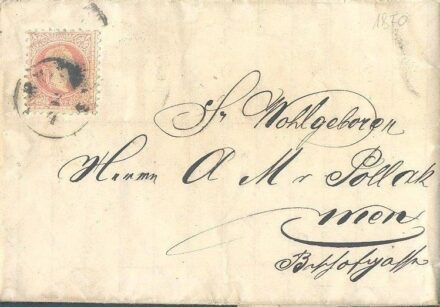 1870
Sr Wohlgeboren
Herrn A M v Pollak
Wien
Bischofgasse